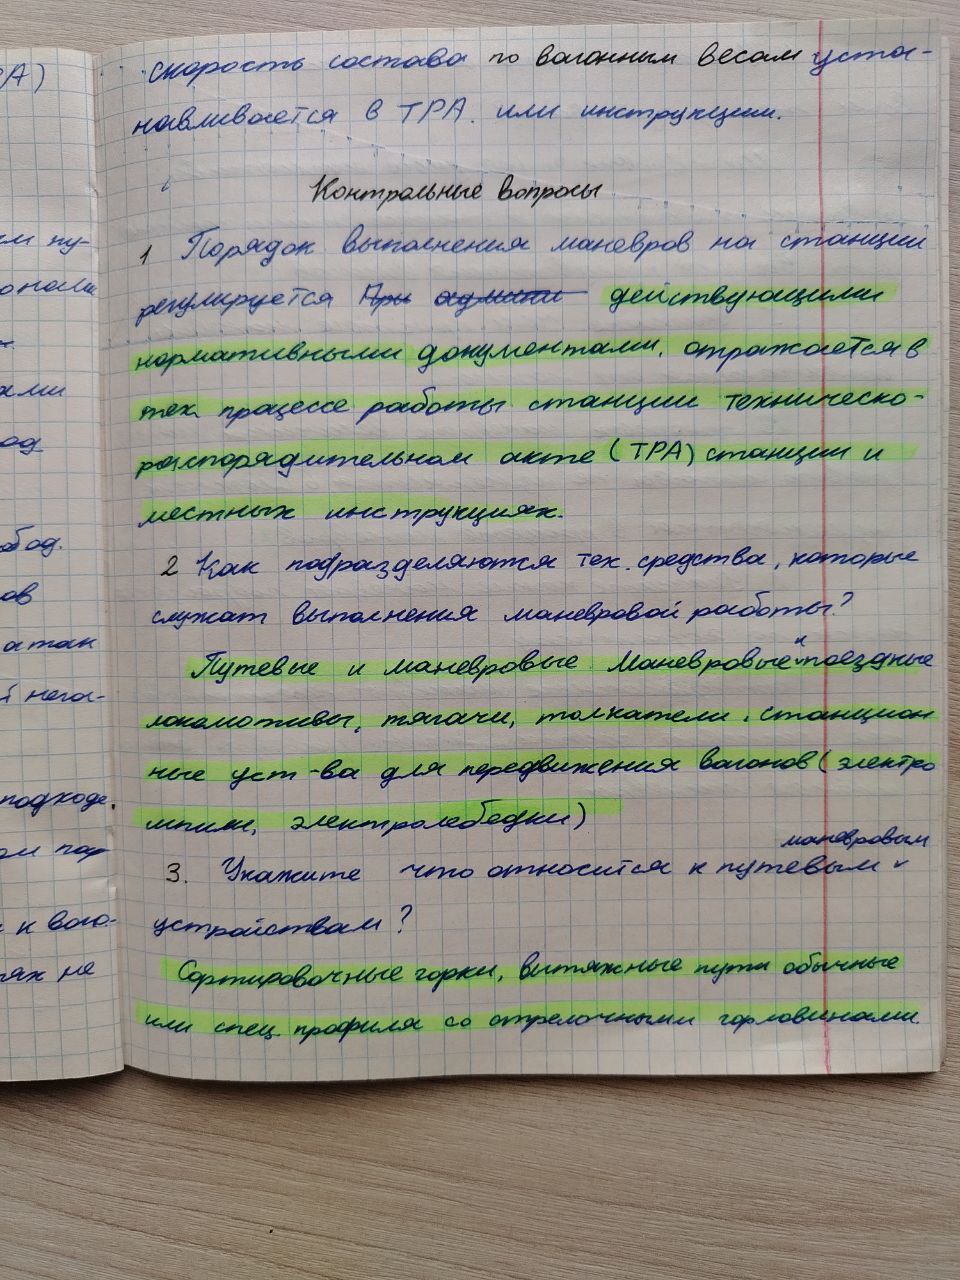 РА)
м пу-
ами
од
обод.
ов
подходе.
к ваго-
ях не
скорость состава по вагонным весам уста-
навливается в ТРА. или инструкции.
Контрольные вопросы
1 Порядок выполнения маневров на станции
регулируется При админи действующими
нормативными документами, отражается в
тех. процессе работы станции техническо-
распорядительном акте (ТРА) станции и
местных инструкциях.
2 Как подразделяются тех. средства, которые
служат выполнения маневровой работы?
Путевые и маневровые. Маневровые и поездные
локомотивы, тягачи, толкатели, станцион
ные уст-ва для передвижения вагонов (электро
шпили, электролебедки)
3. Укажите что относится к путевым маневровым
устройствам?
Сортировочные горки, вытяжные пути обычные
или спец. профиля со стрелочными горловинами.